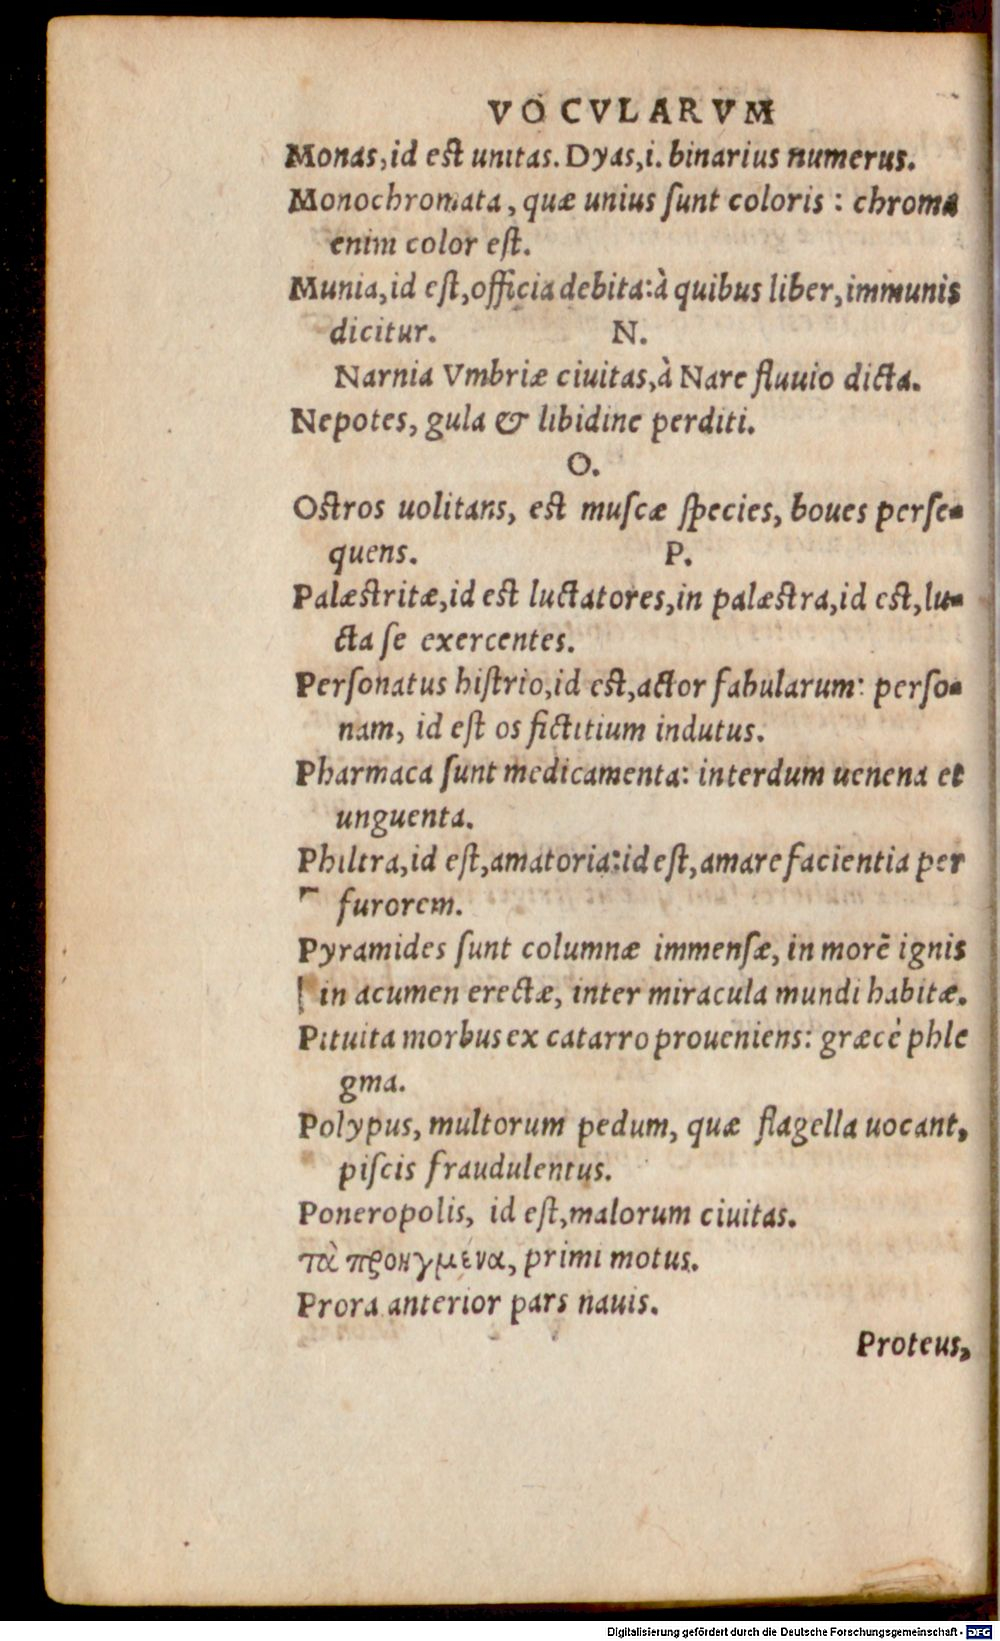 VOCVLARVM
Monas, id est unitas. Dyas, i. binarius numerus.
Monochromata, quæ unius ſunt coloris : chroma
enim color eſt.
Munia, id eſt, officia debita: à quibus liber, immunis
dicitur. N.
Narnia Vmbriæ ciuitas, à Nare fluuio dicta.
Nepotes, gula & libidine perditi.
O.
Ostros uolitans, est muſcæ ſpecies, boues perſe-
quens. P.
Palæstritæ, id est luctatores, in palæstra, id est, lu-
cta ſe exercentes.
Perſonatus hiſtrio, id est, actor fabularum: perſo-
nam, id eſt os fictitium indutus.
Pharmaca ſunt medicamenta: interdum uenena et
unguenta.
Philtra, id eſt, amatoria: id eſt, amare facientia per
furorem.
Pyramides ſunt columnæ immenſæ, in morē ignis
in acumen erectæ, inter miracula mundi habitæ.
Pituita morbus ex catarro proueniens: græcè phle
gma.
Polypus, multorum pedum, quæ flagella uocant,
piſcis fraudulentus.
Poneropolis, id eſt, malorum ciuitas.
τὰ προηγμένα, primi motus.
Prora anterior pars nauis.
Proteus,
Digitalisierung gefördert durch die Deutsche Forschungsgemeinschaft - DFG